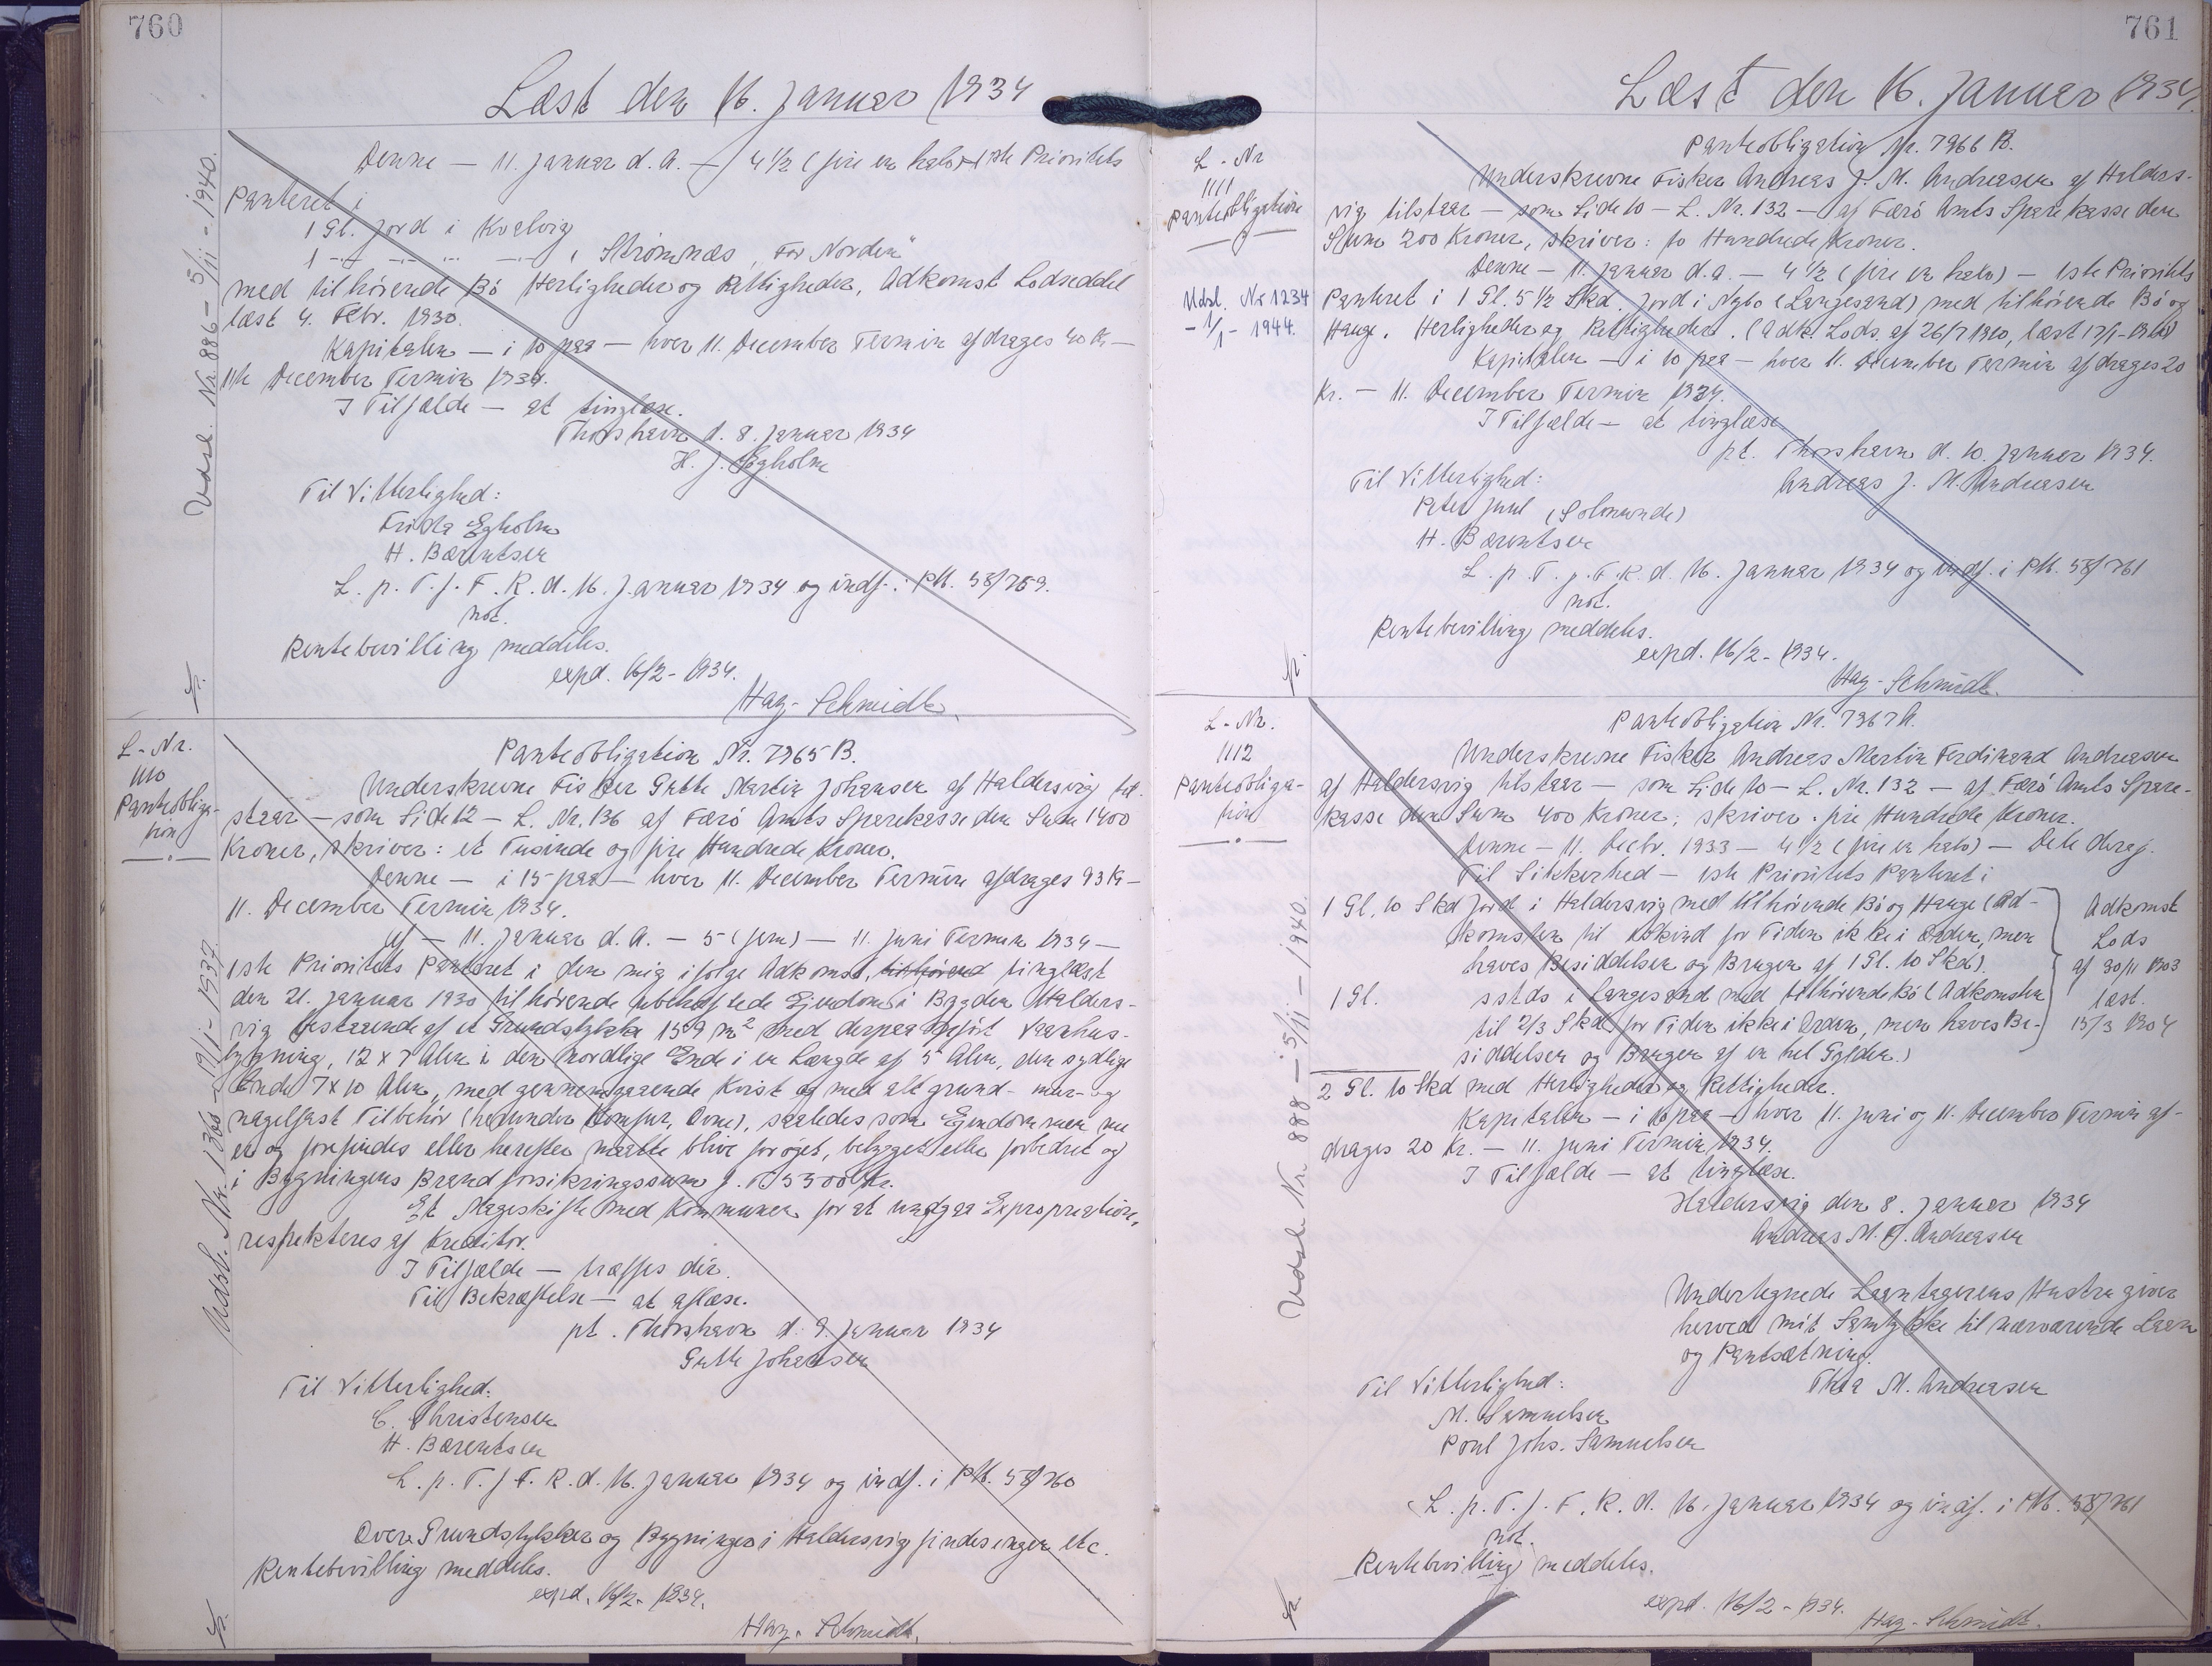 760
Læst den 16. Januar 1934
Udsl. Nr. 886 - 5/11 - 1940.
Denne — 11. Januar d. A. — 4 1/2 (fire en halv) — 1ste Prioritets
Panteret i
1 Gl. Jord i Kvalvig
1 -"- -"- -"- -"- i Strømnæs „For Norden"
med tilhørende Bø Herligheder og Rettigheder, Adkomst Lodseddel
læst 4. Febr. 1930.
Kapitalen — i 10 paa — hver 11. December Termin afdrages 40 Kr —
11te December Termin 1934.
I Tilfælde — at tinglæse.
Thorshavn d. 8. Januar 1934
H. J. Egholm
Til Vitterlighed:
Frida Egholm
H. Bærentsen
L. p. T. f. F. R. d. 16. Januar 1934 og indf. i PM. 58/759.
not.
Rentebevilling meddeles.
expd. 16/2 - 1934.
Hay-Schmidt.
fr.
L-Nr.
1110
Panteobliga-
tion
Udsl. Nr. 1360 - 19/1 - 1937
Panteobligation Nr. 7965 B.
Underskrevne Fisker Gutte Martin Johansen af Haldersvig til-
staar — som Side 12 — L. Nr. 136 af Færø Amts Sparekasse den Sum 1400
Kroner, skriver: et Tusinde og fire Hundrede Kroner.
Denne — i 15 paa — hver 11. December Termin afdrages 93 Kr —
11. December Termin 1934.
Af — 11. Januar d. A. — 5 (fem) — 11. Juni Termin 1934 —
1ste Prioritets Panteret i den mig ifølge Adkomst, tilhørend tinglæst
den 21. Januar 1930 tilhørende ubehæftede Ejendom i Bygden Halders-
vig bestaaende af et Grundstykke 159 m² med derpaa opført Vaanhus-
bygning, 12 x 7 Alen i den nordlige Ende i en Længde af 5 Alen, den sydlige
Ende 7 x 10 Alen, med gennemgaaende Kvist og med alt grund- mur- og
nagelfast Tilbehør (herunder Komfur, Ovne), saaledes som Ejendommen nu
er og forefindes eller herefter maatte blive forøjet, bebygget eller forbedret og
i Bygningens Brandforsikringssum f. T. 5500 Kr.
Et Mageskifte med Kommunen for at undgaa Expropriation,
respekteres af Kreditor.
I Tilfælde — træffes dér.
Til Bekræftelse — at aflæse.
pt. Thorshavn d. 9. Januar 1934
Gutte Johansen
Til Vitterlighed:
C. Christensen
H. Bærentsen
L. p. T. f. F. R. d. 16. Januar 1934 og indf. i PM. 58/760
Over Grundstykker og Bygninger i Haldersvig findes ingen etc.
Rentebevilling meddeles.
expd. 16/2 - 1934.
Hay-Schmidt.
fr.
761
Læst den 16. Januar 1934.
L-Nr
1111
Panteobligation
Udsl. Nr 1234
- 1/1 - 1944.
Panteobligation Nr. 7966 B.
Underskrevne Fisker Andreas J. M. Andreasen af Halders-
vig tilstaar — som Side 10 — L. Nr. 132 — af Færø Amts Sparekasse den
Sum 200 Kroner, skriver: to Hundrede Kroner.
Denne — 11. Januar d. a. — 4 1/2 (fire en halv) — 1ste Prioritets
Panteret i 1 Gl. 5 1/2 Skd. Jord i Nybo (Langesand) med tilhørende Bø og
Hauge, Herligheder og Rettigheder. (Adk. Lods. af 26/7 1910, læst 17/1-1911)
Kapitalen — i 10 paa — hver 11. December Termin afdrages 20
Kr. — 11. December Termin 1934.
I Tilfælde — at tinglæse
pt. Thorshavn d. 10. Januar 1934.
Andreas J. M. Andreasen
Til Vitterlighed:
Peter Juul (Solmunde)
H. Bærentsen
L. p. T. f. F. R. d. 16. Januar 1934 og indf. i PM. 58/761
not.
Rentebevilling meddeles.
expd. 16/2 - 1934.
Hay-Schmidt.
fr.
L-Nr.
1112
Panteobliga-
tion
Udsl. Nr. 888 - 5/11 - 1940.
Panteobligation Nr. 7967 A.
Underskrevne Fisker Andreas Martin Ferdinand Andreasen
af Haldersvig tilstaar — som Side 10 — L. Nr. 132 — af Færø Amts Spare-
kasse den Sum 400 Kroner, skriver: fire Hundrede Kroner.
Denne — 11. Decbr. 1933 — 4 1/2 (fire en halv) — Dele deraf.
Til Sikkerhed — 1ste Prioritets Panteret i
1 Gl. 10 Skd Jord i Haldersvig med tilhørende Bø og Hauge (Ad-
komsten til 2 Skind for Tiden ikke i Orden, men
haves Besiddelsen og Brugen af 1 Gl. 10 Skd).
1 Gl. sstds i Langesand med tilhørende Bø (Adkomsten
til 2/3 Skd for Tiden ikke i Orden, men haves Be-
siddelsen og Brugen af en hel Gylden.)
Adkomst
Lods
af 30/11 1903
læst.
15/3 1904
2 Gl. 10 Skd med Herligheder og Rettigheder.
Kapitalen — i 10 paa — hver 11. Juni og 11. December Termin af-
drages 20 Kr. — 11. Juni Termin 1934.
I Tilfælde — at tinglæse.
Haldersvig den 8. Januar 1934
Andreas M. F. Andreasen
Undertegnede Laantagerens Hustru giver
herved mit Samtykke til nærværende Laan
og Pantsætning.
Thea M. Andreasen
Til Vitterlighed:
M. Samuelsen
Poul Johs. Samuelsen
L. p. T. f. F. R. d. 16. Januar 1934 og indf. i PM. 58/761
not.
Rentebevilling meddeles.
expd. 16/2 - 1934.
Hay-Schmidt.
fr.